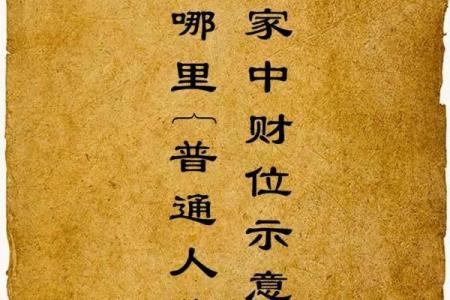 家中财位示意
哪里︷普通人